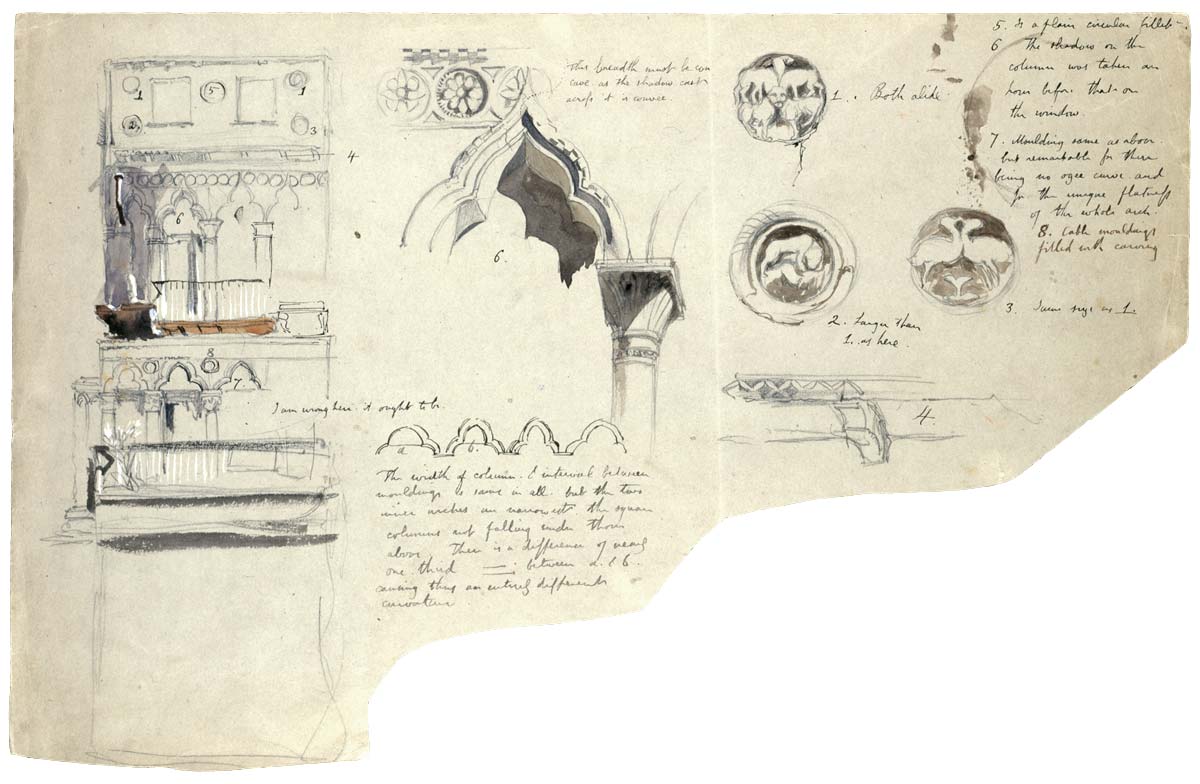 1
5
1
2
3
4
6
8
7.
This breadth must be con
cave as the shadow cast
across it is convex.
6.
1. Both alike
2. Larger than
1. as here.
3. Same size as 1.
4.
5. is a plain circular fillet
6 The shadow on the
column was taken an
hour before that on
the window.
7. Moulding same as above
but remarkable for there
being no ogee curve and
for the unique flatness
of the whole arch.
8. Cable mouldings
filled with carving
I am wrong here it ought to be.
a b.
The width of column. & interval between
mouldings is same in all. but the two
inner arches are narrowest the square
columns not falling under those
above. There is a difference of nearly
one third between a. & b.
causing thus an entirely different
curvature.